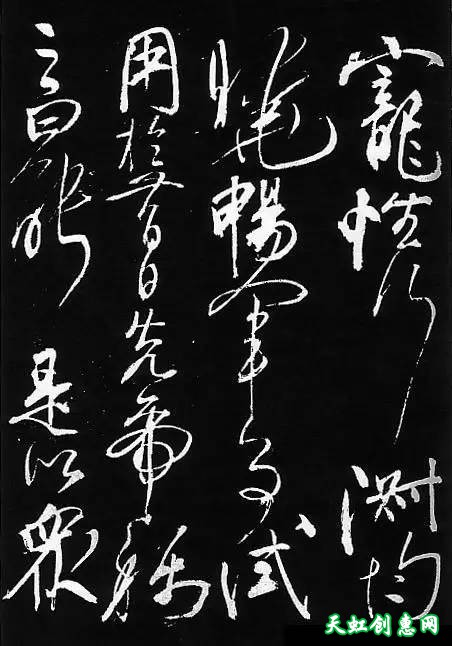 寵性行淑均
曉暢軍事試
用於昔日先帝稱
之曰能是以衆
天虹创惠网